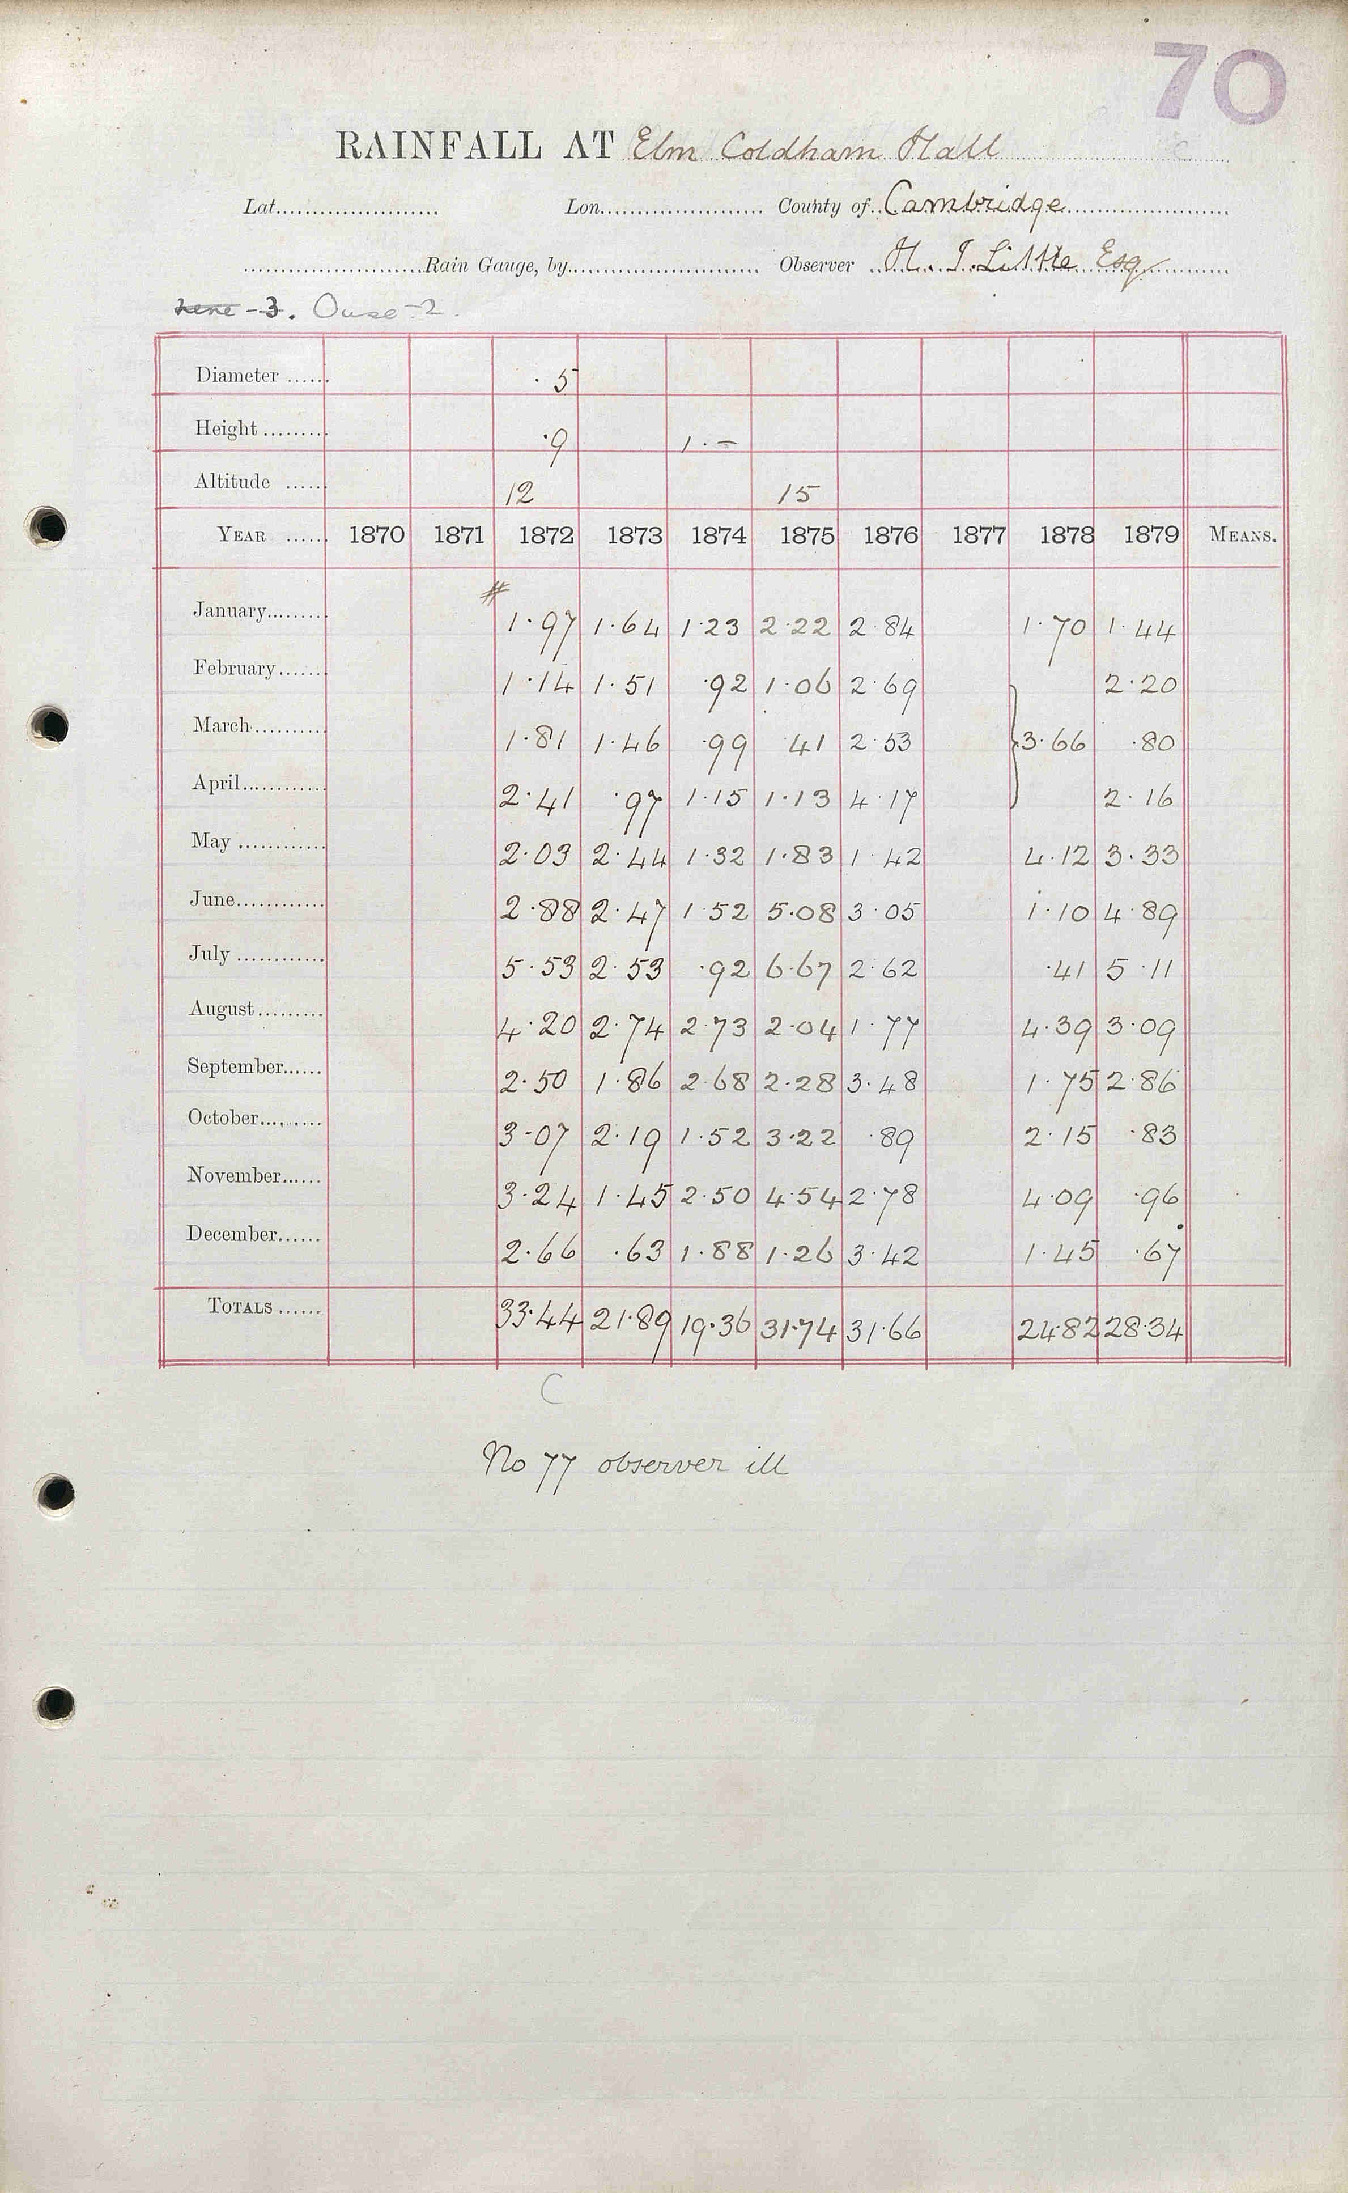 70
RAINFALL AT Elm Coldham Hall
Lat...................... Lon...................... County of Cambridge
Rain Gauge, by...................... Observer H. I. Little Esq
- 3. Ouse - 2.
Diameter ...... · 5
Height ......... ·9 1 · –
Altitude ...... 12 15
YEAR ...... 1870 1871 1872 1873 1874 1875 1876 1877 1878 1879 MEANS.
#
January......... 1·97 1·64 1·23 2·22 2·84 1·70 1·44
February....... 1·14 1·51 ·92 1·06 2·69 2·20
March........... 1·81 1·46 ·99 41 2·53 } 3·66 ·80
April............ 2·41 ·97 1·15 1·13 4·17 2·16
May ............ 2·03 2·44 1·32 1·83 1·42 4·12 3·33
June............ 2·88 2·47 1·52 5·08 3·05 1·10 4·89
July ............ 5·53 2·53 ·92 6·67 2·62 ·41 5·11
August......... 4·20 2·74 2·73 2·04 1·77 4·39 3·09
September...... 2·50 1·86 2·68 2·28 3·48 1·75 2·86
October......... 3·07 2·19 1·52 3·22 ·89 2·15 ·83
November...... 3·24 1·45 2·50 4·54 2·78 4·09 ·96
December...... 2·66 ·63 1·88 1·26 3·42 1·45 ·67
TOTALS ...... 33·44 21·89 19·36 31·74 31·66 24·82 28·34
C
No 77 observer ill